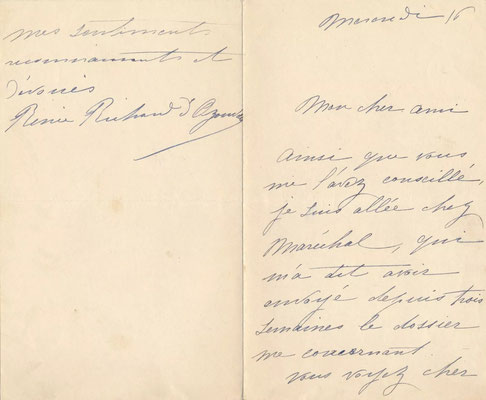 Mercredi 16
Mon cher ami
Ainsi que vous
me l'avez conseillé,
je suis allée chez
Maréchal, qui
m'a dit avoir
envoyé depuis trois
semaines le dossier
me concernant.
Vous voyez cher
mes sentiments
reconnaissants et
dévoués
Renée Richard